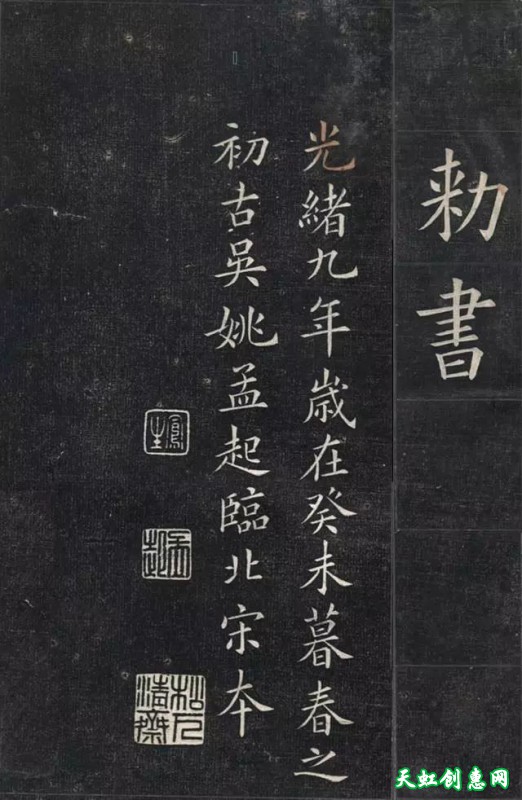 勅書
光緒九年歲在癸未暮春之
初古吳姚孟起臨北宋本
鳳生
孟起
天虹创惠网